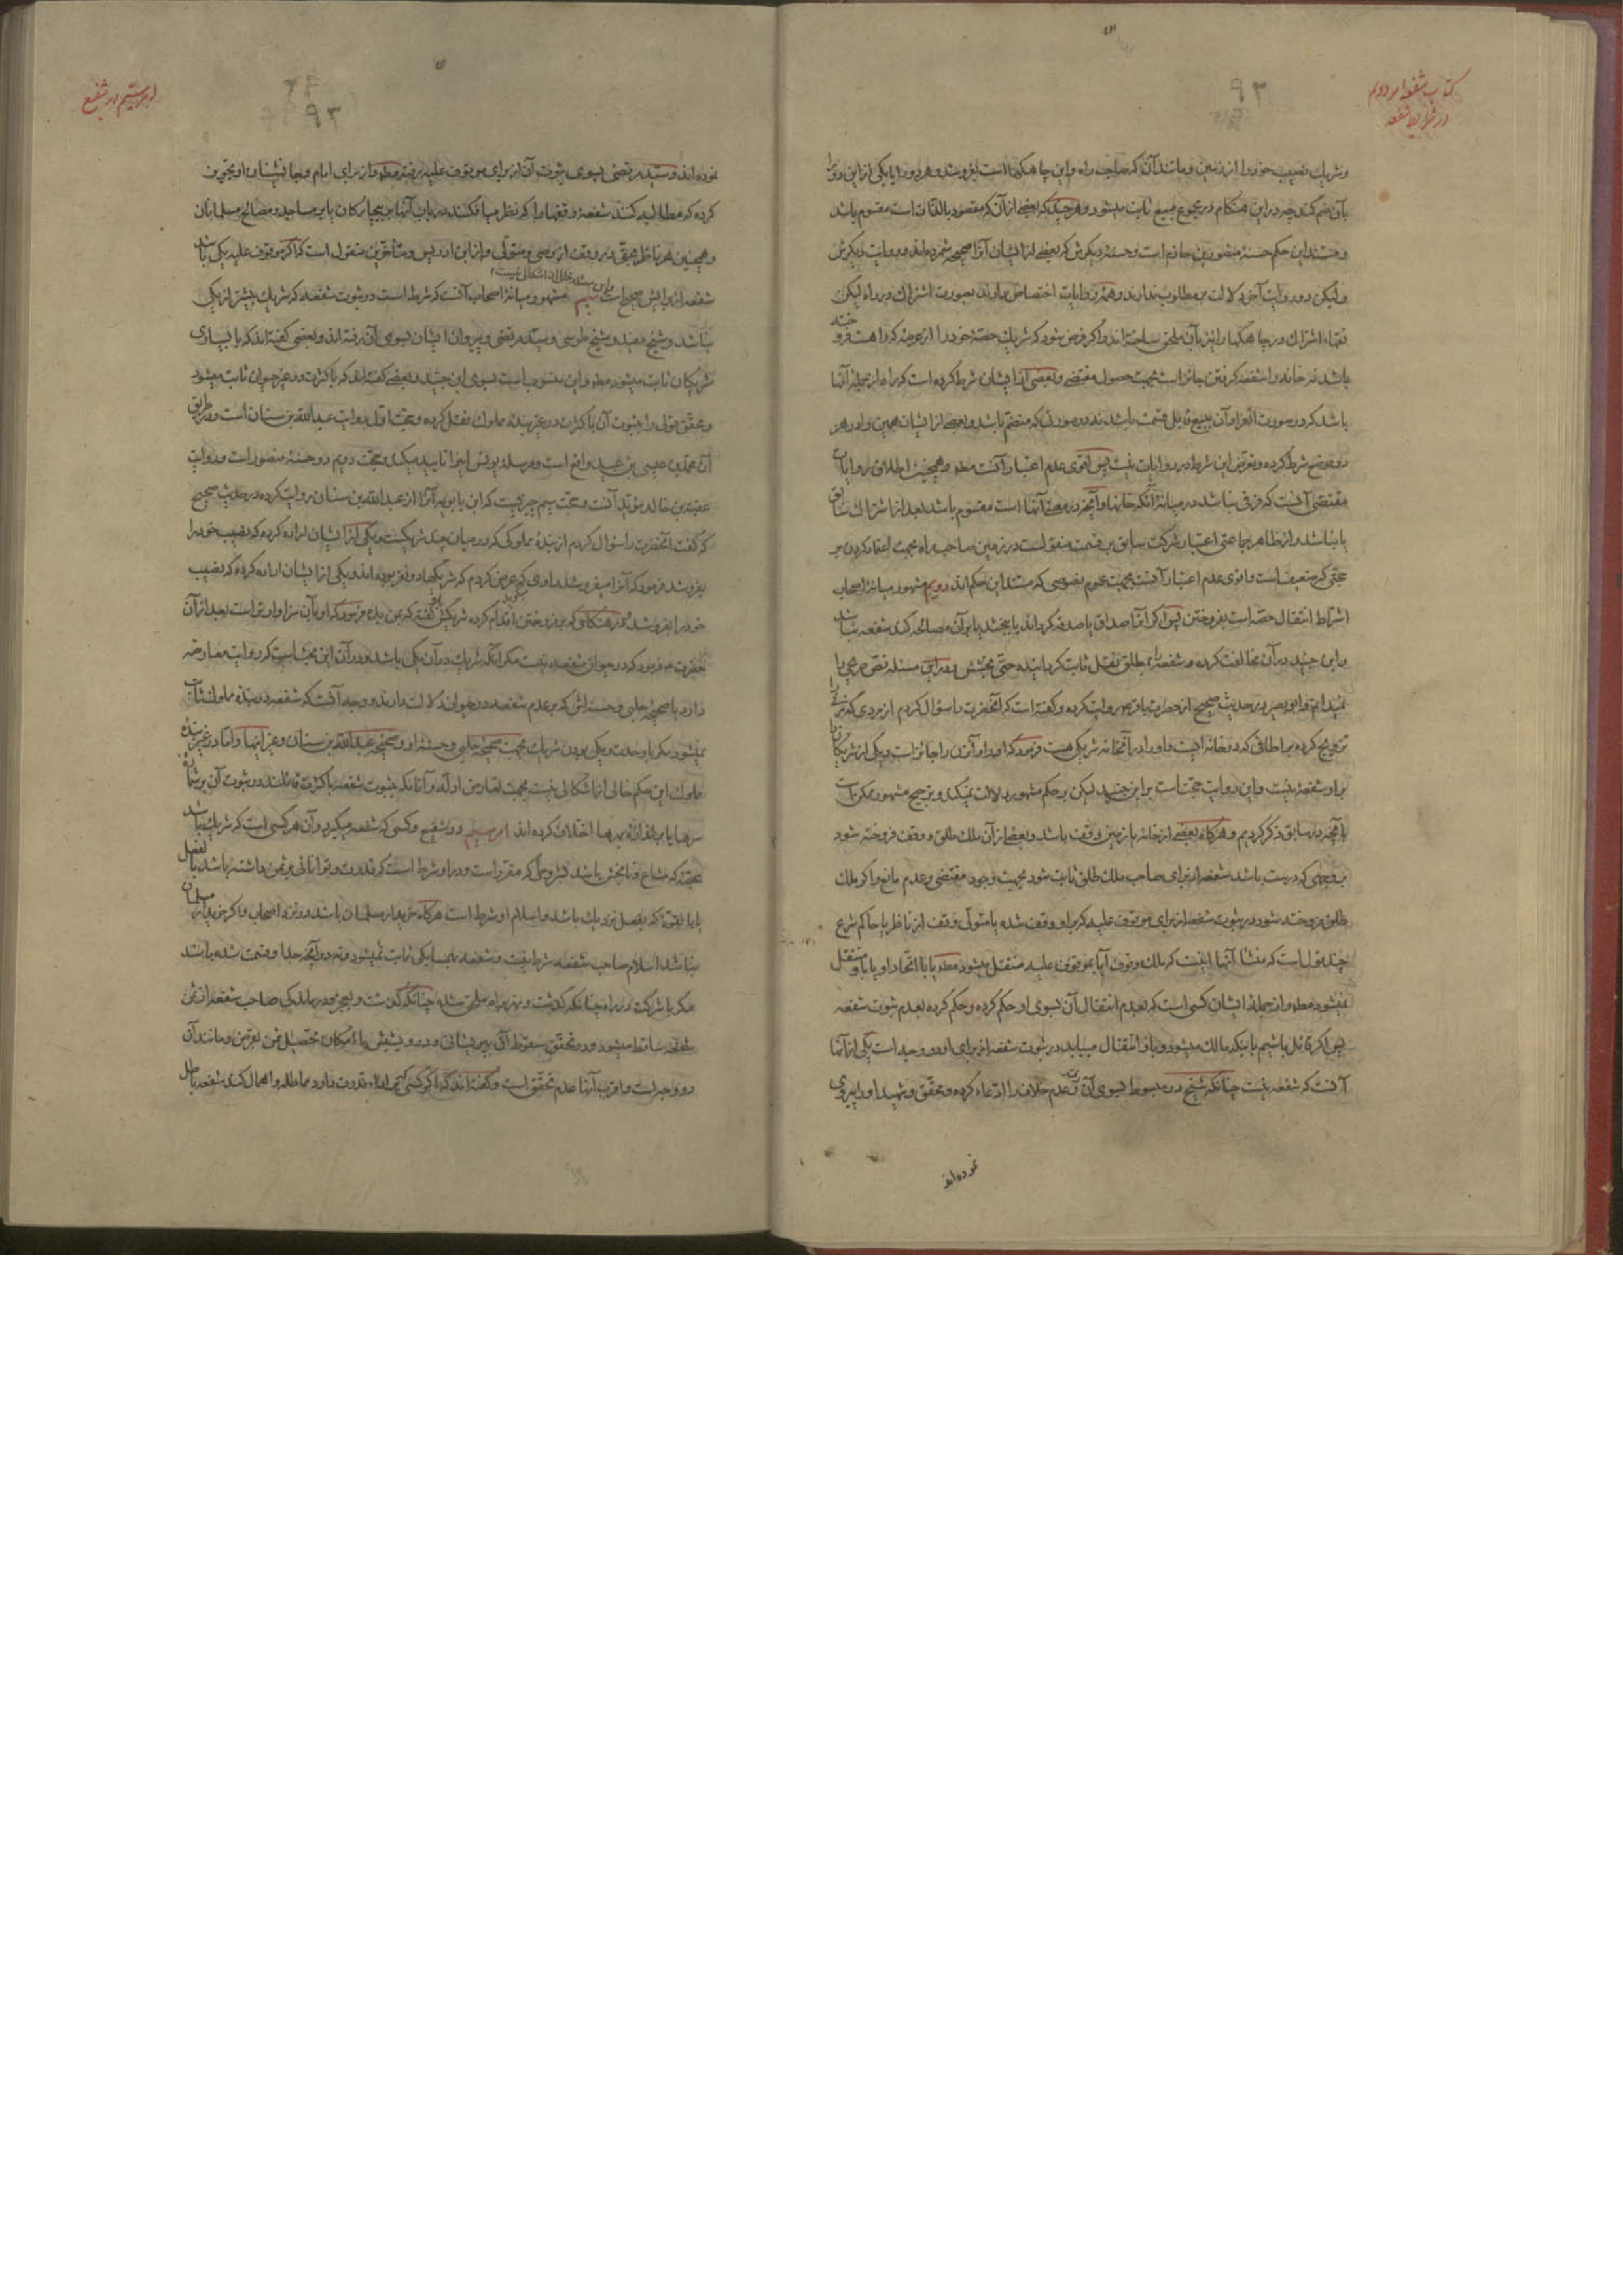 کتاب شفعه امر دوم
در شرایط شفعه
۹۳
و شریك نصیب خود را از زمین و مانند آن که صاحب راه و این چاهگها است بفروشد و هر دو را یا یکی از این دو را
بآن ضم کند چه در این هنگام در مجموع مبیع ثابت میشود و هر چند که بعضی از آن که مقصود بالذات است مقسوم باشد
و مستند این حکم حسنهٔ منصور بن حازم است و حسنهٔ دیگرش که بعضی از ایشان آنرا صحیح شمرده‌اند و روایت دیگرش
و لیکن دو روایت آخر دلالت بر مطلوب ندارند و همهٔ روایات اختصاص دارند بصورت اشتراك در راه لیکن
فقهاء اشتراك در چاهگها را نیز بآن ملحق ساخته‌اند و اگر فرض شود که شریك حصهٔ خود را از عرصه که راهست فروخته
باشد نه خانه را شفعه گرفتن جائز است بجهت حصول مقتضی و بعضی از ایشان شرط کرده است که راه از جمله آنها
باشد که در صورت انفراد آن ببیع قابل قسمت باشد نه در صورتی که منضم باشد و بعضی از ایشان همین را در هر
دو موضع شرط کرده و تعرض این شرط در روایات نیست پس اقوی عدم اعتبار آنست مطه و همچنین اطلاق روایات
مقتضی آنست که فرقی نباشد در میانهٔ آنکه خانها و آنچه در معنی آنها است مقسوم باشد بعد از اشتراك سابق
یا نباشد و از ظاهر جماعتی اعتبار شرکت سابق بر قسمت متفق است در زمین صاحب راه بجهت اعتماد کردن بر
حجتی که ضعیف است و اقوی عدم اعتبار آنست بجهت عموم نصوصی که مستند این حکم‌اند دویم مشهور میانهٔ اصحاب
اشتراط انتقال حصه است بفروختن پس اگر آنرا صداق یا صدقه گرداند یا ببخشد یا بر آن مصالحه کند شفعه نباشد
و ابن جنید در آن مخالفت کرده و شفعه را بمطلق نقل ثابت گردانیده حتی بخشش و در این مسئله نصی صریحی را
نمیدانم و ابو بصیر در حدیث صحیح از حضرت باقر ع روایت کرده و گفته است که آنحضرت را سؤال کردم از مردی که زنی را
تزویج کرده بر اطاقی که در خانه ایست و او را در آنخانه شریکی هست فرمود که او را و آنزن را جائز است و یکی از شریکان را
بر او شفعهٔ نیست و این روایت حجت است بر ابن جنید لیکن بر حکم مشهور دلالت نمیکند و ترجیح مشهور ممکن است
با آنچه در سابق ذکر کردیم و هرگاه بعضی از خانه یا زمین وقف باشد و بعضی از آن ملك طلق و وقف فروخته شود
بر وجهی که درست باشد شفعه از برای صاحب ملك طلق ثابت شود بجهت وجود مقتضی و عدم مانع و اگر ملك
طلق فروخته شود در ثبوت شفعه از برای موقوف علیه که بر او وقف شده یا متولی وقف از ناظر یا حاکم شرع
چند قول است که منشأ آنها اینست که ملك موقوف آیا بموقوف علیه منتقل میشود مطه یا با اتحاد او یا باو منتقل
نمیشود مطه و از جملهٔ ایشان کسی است که بعدم انتقال آن بسوی او حکم کرده و حکم کرده بعدم ثبوت شفعه
پس اگر قائل باشیم باینکه مالك میشود و باو انتقال مییابد در ثبوت شفعه از برای او دو وجه است یکی از آنها
آنست که شفعه نیست چنانکه شیخ در مبسوط بسوی آن رفته و عدم خلاف را ادعاء کرده و محقق و شهید او را پیروی
نموده‌اند
امر سیم در شفیع
۹۳
نموده‌اند و سید مرتضی بسوی ثبوت آن از برای موقوف علیه رفته مطه و از برای امام و جانشینان او تجویز
کرده که مطالبه کنند شفعهٔ وقفها را که نظر میافکنند در باب آنها بر بیچارگان یا بر مساجد و مصالح مسلمانان
و همچنین هر ناظر بحقی در وقف از وصی و متولی و از ابن ادریس و متأخرین منقول است که اگر موقوف علیه یکی باشد
شفعه از برایش صحیح است و این مسئله خالی از اشکال نیست سیم مشهور میانهٔ اصحاب آنست که شرط است در ثبوت شفعه که شریك بیشتر از یکی
نباشد و شیخ مفید و شیخ طوسی و سید مرتضی و پیروان ایشان بسوی آن رفته‌اند و بعضی گفته‌اند که با بسیاری
شریکان ثابت میشود مطه و این منسوب است بسوی ابن جنید و بعضی گفته‌اند که با کثرت در غیر حیوان ثابت میشود
و محقق قول را بثبوت آن با کثرت در غیر بندهٔ مملوك نقل کرده و حجت اول روایت عبدالله بن سنان است و در طریق
آن محمد بن عیسی بن عبید واقع است و مرسله یونس اینرا تایید میکند و حجت دویم دو حسنهٔ منصور است و روایت
عقبة بن خالد مؤید آنست و حجت سیم چیزیست که ابن بابویه آنرا از عبدالله بن سنان روایت کرده در حدیث صحیح
که گفت آنحضرت را سؤال کردم از بندهٔ مملوکی که در میان چند شریکست و یکی از ایشان اراده کرده که نصیب خود را
بفروشد فرمود که آنرا میفروشد راوی گوید عرض کردم که شریکها دو نفر بوده‌اند و یکی از ایشان اراده کرده که نصیب
خود را بفروشد و هنگامی که بر فروختن اقدام کرده شریکش باو گفته که بمن بده فرمود که او بآن سزاوارتر است بعد از آن
حضرت ع فرمود که در حیوان شفعه نیست مگر آنکه شریك در آن یکی باشد و در آن این بحث است که روایت معارضه
دارد با صحیحهٔ حلبی و حسنه‌اش که بر عدم شفعه در حیوان دلالت دارند و وجه آنست که شفعه در بندهٔ مملوك ثابت
نمیشود مگر با وحدت و یکی بودن شریك بجهت صحیحهٔ حلبی و حسنهٔ او و صحیحهٔ عبدالله بن سنان و غیر اینها و اما در غیر بندهٔ
مملوك این حکم خالی از اشکالی نیست بجهت تعارض ادله و آنانکه بثبوت شفعه با کثرت قائلند در ثبوت آن بر شمارهٔ
سرها یا بر اندازهٔ بهرها اختلاف کرده‌اند امر سیم در شفیع و کسی که شفعه میگیرد و آن هر کسی است که شریك باشد
بحصه که مشاع و نابخش باشد بشروطی که مقرر است و در او شرط است که قدرت و توانائی بر ثمن داشته باشد بالفعل
یا با بقوه که بفعل نزدیك باشد و اسلام او شرط است هرگاه خریدار مسلمان باشد و نزد اصحاب و اگر خریدار مسلمان
نباشد اسلام صاحب شفعه شرط نیست و شفعه بهمسایگی ثابت نمیشود و نه در آنچه جدا و قسمت شده باشد
مگر با شرکت در راه چنانکه گذشت و نهر براه ملحق شده چنانکه گذشت و بعجز و درماندگی صاحب شفعه از ثمن
شفعه ساقط میشود و در تحقق سقوط آن بپریشانی و درویشیش با امکان تحصیل ثمن بقرض و مانند آن
دو وجه است و اقرب آنها عدم تحقق است و گفته‌اند که اگر کسی که بر اداء قدرت دارد مماطله و اهمال کند شفعه باطل